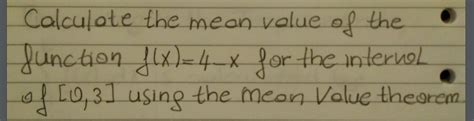 Calculate the mean value of the
function f(x)=4-x for the interval
of [0,3] using the mean Value theorem